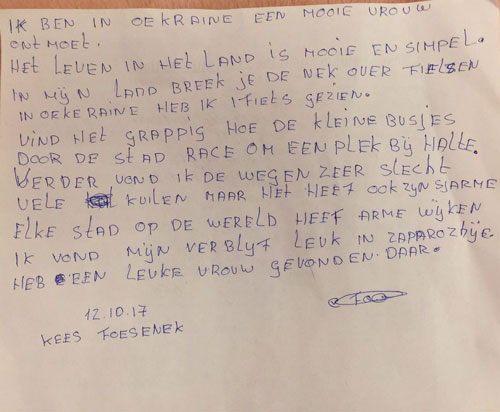 IK BEN IN OEKRAINE EEN MOOIE VROUW
ONTMOET.
HET LEVEN IN HET LAND IS MOOIE EN SIMPEL.
IN MIJN LAND BREEK JE DE NEK OVER FIETSEN
IN OEKERAINE HEB IK 1 FIETS GEZIEN.
VIND HET GRAPPIG HOE DE KLEINE BUSJES
DOOR DE STAD RACE OM EEN PLEK BIJ HALTE.
VERDER VOND IK DE WEGEN ZEER SLECHT
VELE KUILEN MAAR HET HEEFT OOK ZYN SJARME
ELKE STAD OP DE WERELD HEEFT ARME WIJKEN
IK VOND MIJN VERBLYF LEUK IN ZAPAROZHYE.
HEB EEN LEUKE VROUW GEVONDEN. DAAR.
12.10.17
KEES FOESENEK